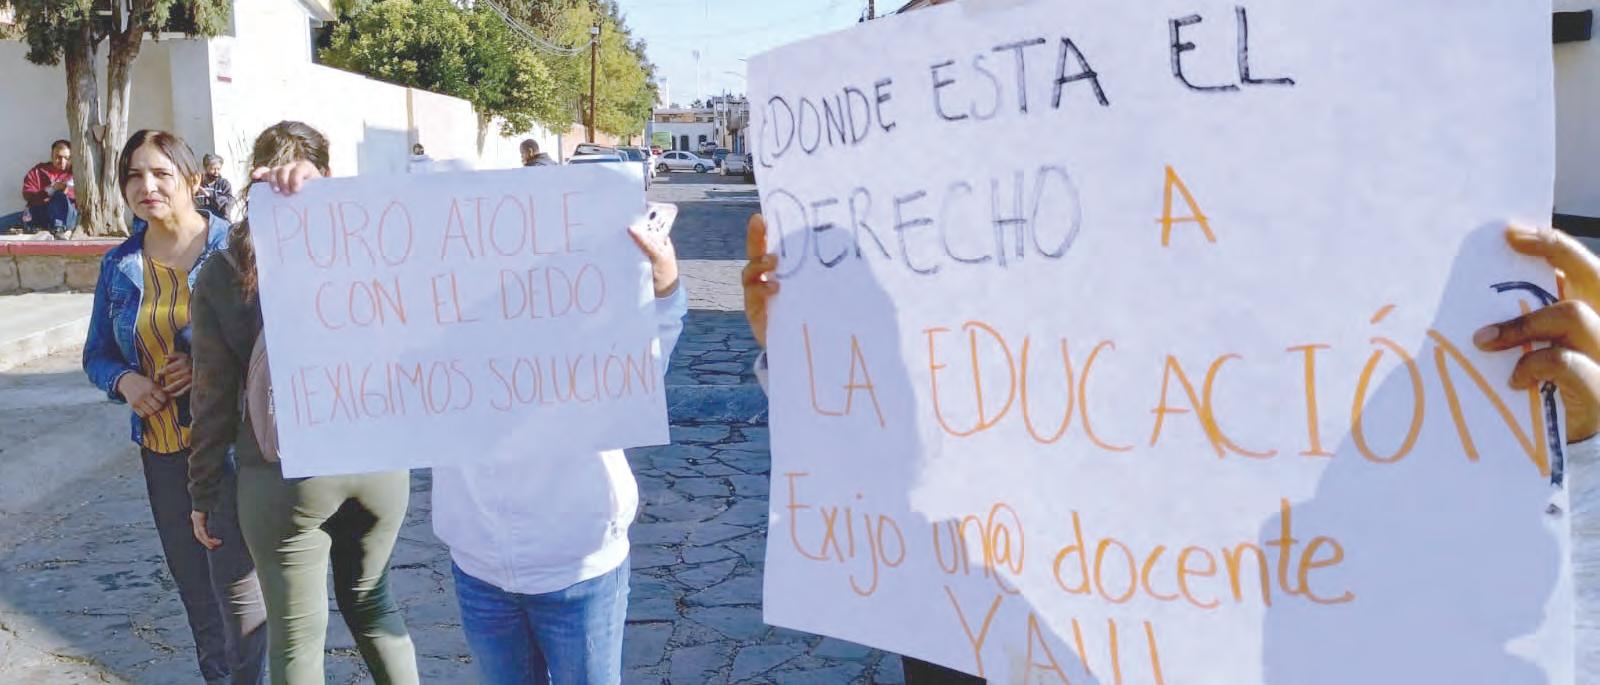 PURO ATOLE
CON EL DEDO
¡EXIGIMOS SOLUCIÓN!
¿DONDE ESTA EL
DERECHO A
LA EDUCACIÓN?
Exijo un@ docente
YA!!!